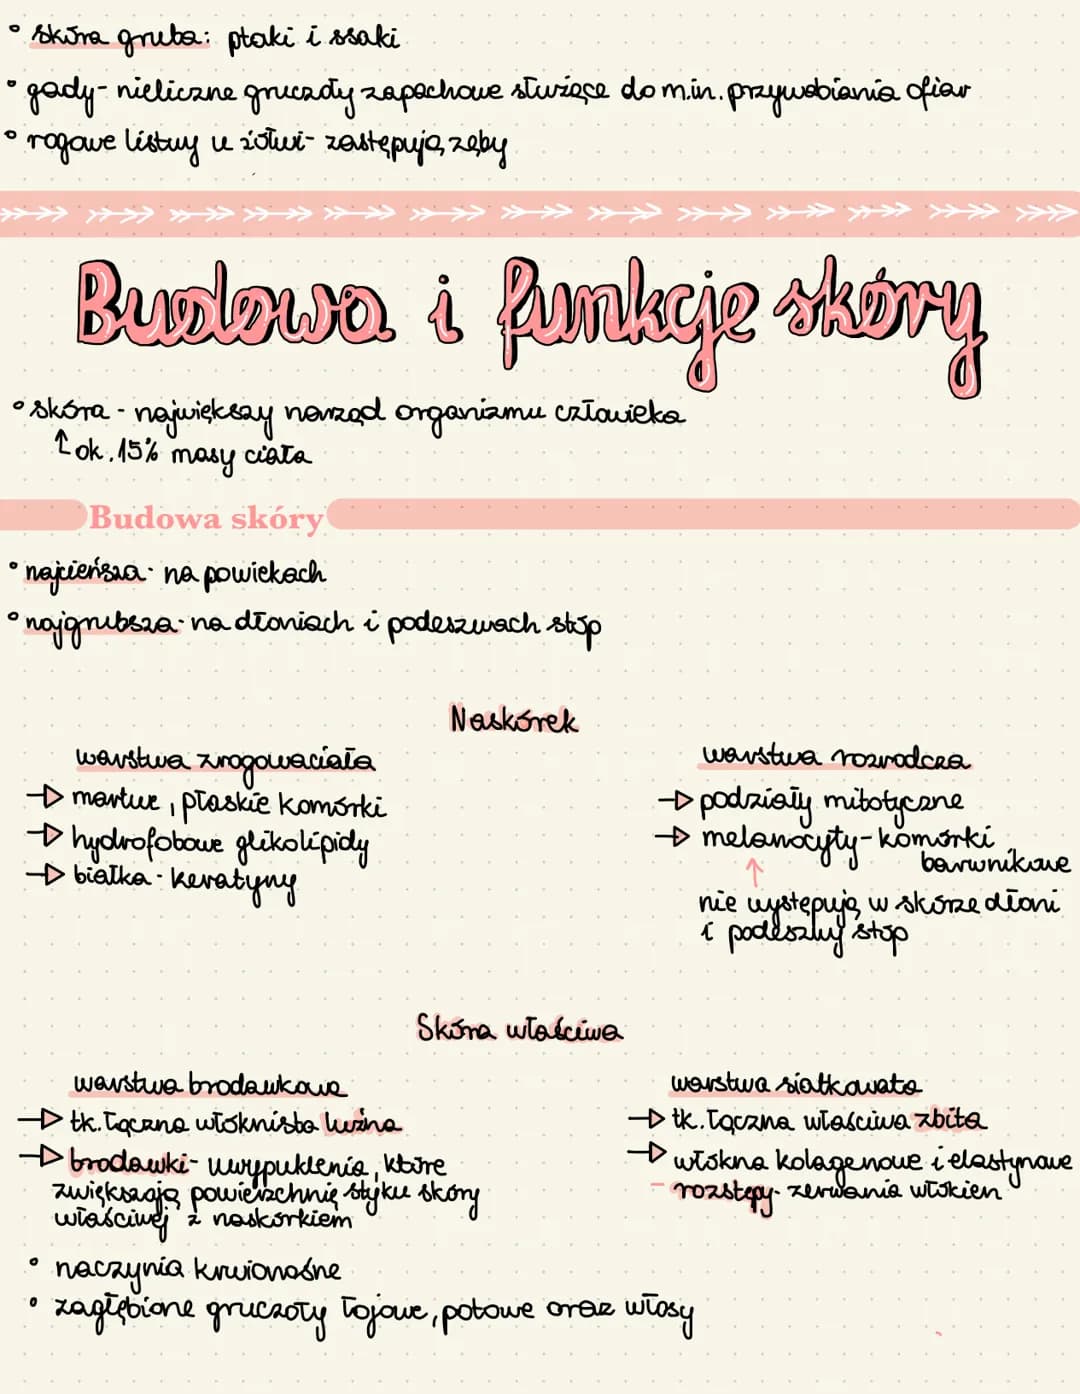 ° skóra gruba: ptaki i ssaki
° gady- nieliczne gruczoły zapachowe służące do m.in. przywabiania ofiar
° rogowe listwy u żółwi- zastępują zęby
Budowa i funkcje skóry
° skóra - największy narząd organizmu człowieka
↑ ok. 15% masy ciała
Budowa skóry
° najcieńsza- na powiekach
° najgrubsza- na dłoniach i podeszwach stóp
Naskórek
warstwa zrogowaciała
→ martwe, płaskie komórki
→ hydrofobowe glikolipidy
→ białka - keratyny
warstwa rozrodcza
→ podziały mitotyczne
→ melanocyty- komórki
barwnikowe
↑
nie występują w skórze dłoni
i podeszwy stóp
Skóra właściwa
warstwa brodawkowa
→ tk. łączna włóknista luźna
→ brodawki- uwypuklenia, które
zwiększają powierzchnię styku skóry
właściwej z naskórkiem
warstwa siatkowata
→ tk. łączna właściwa zbita
→ włókna kolagenowe i elastynowe
- rozstępy- zerwania włókien
° naczynia krwionośne
° zagłębione gruczoły łojowe, potowe oraz włosy